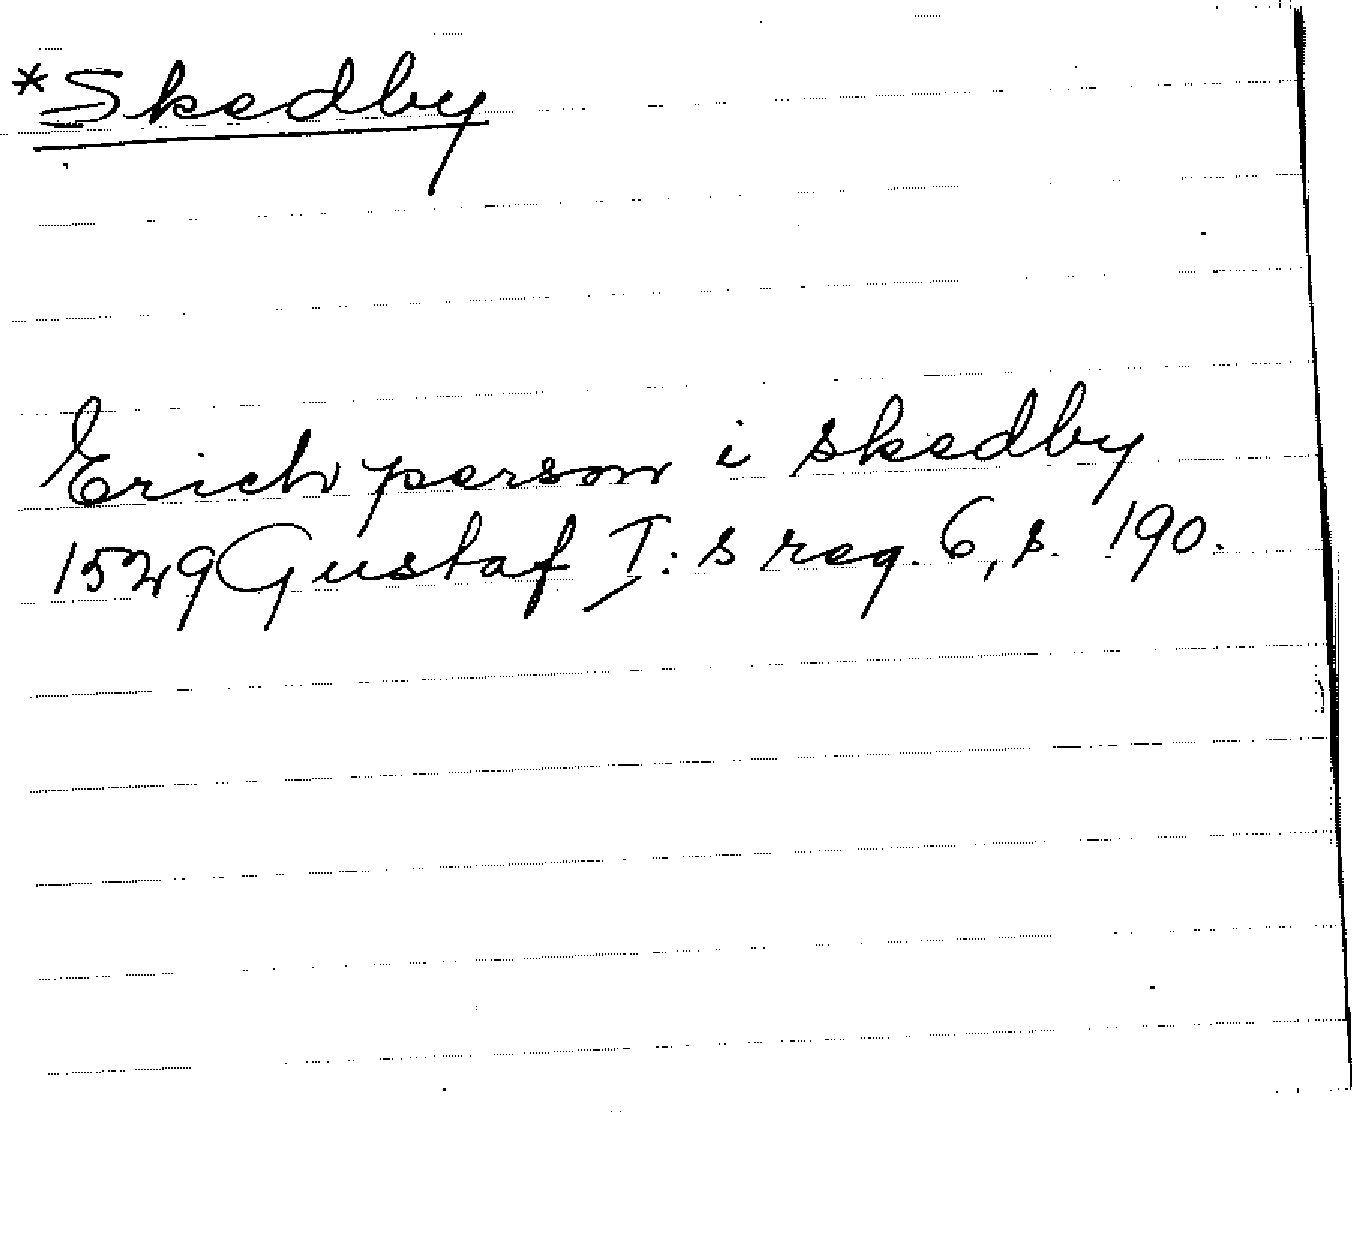 *Skedby
Erich person i skedby
1529 Gustaf I:s reg. 6, s. 190.